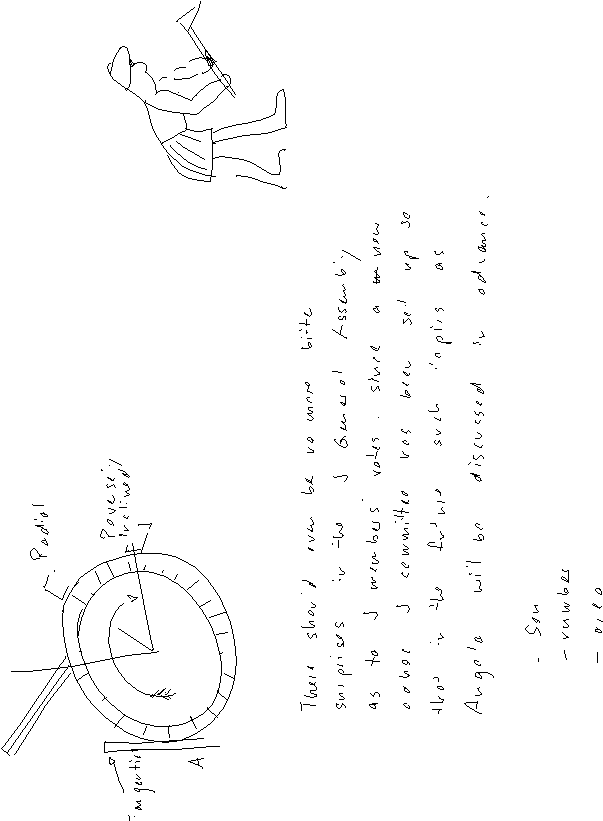 Radial
Reversely
inclined
Tangential
A
There should even be no more bitte
surprises in the J General Assembly
as to J members' votes. since a new
adhoc J committee has been set up so
that in the future such topics as
Angola will be discussed in advance.
- Son
- number